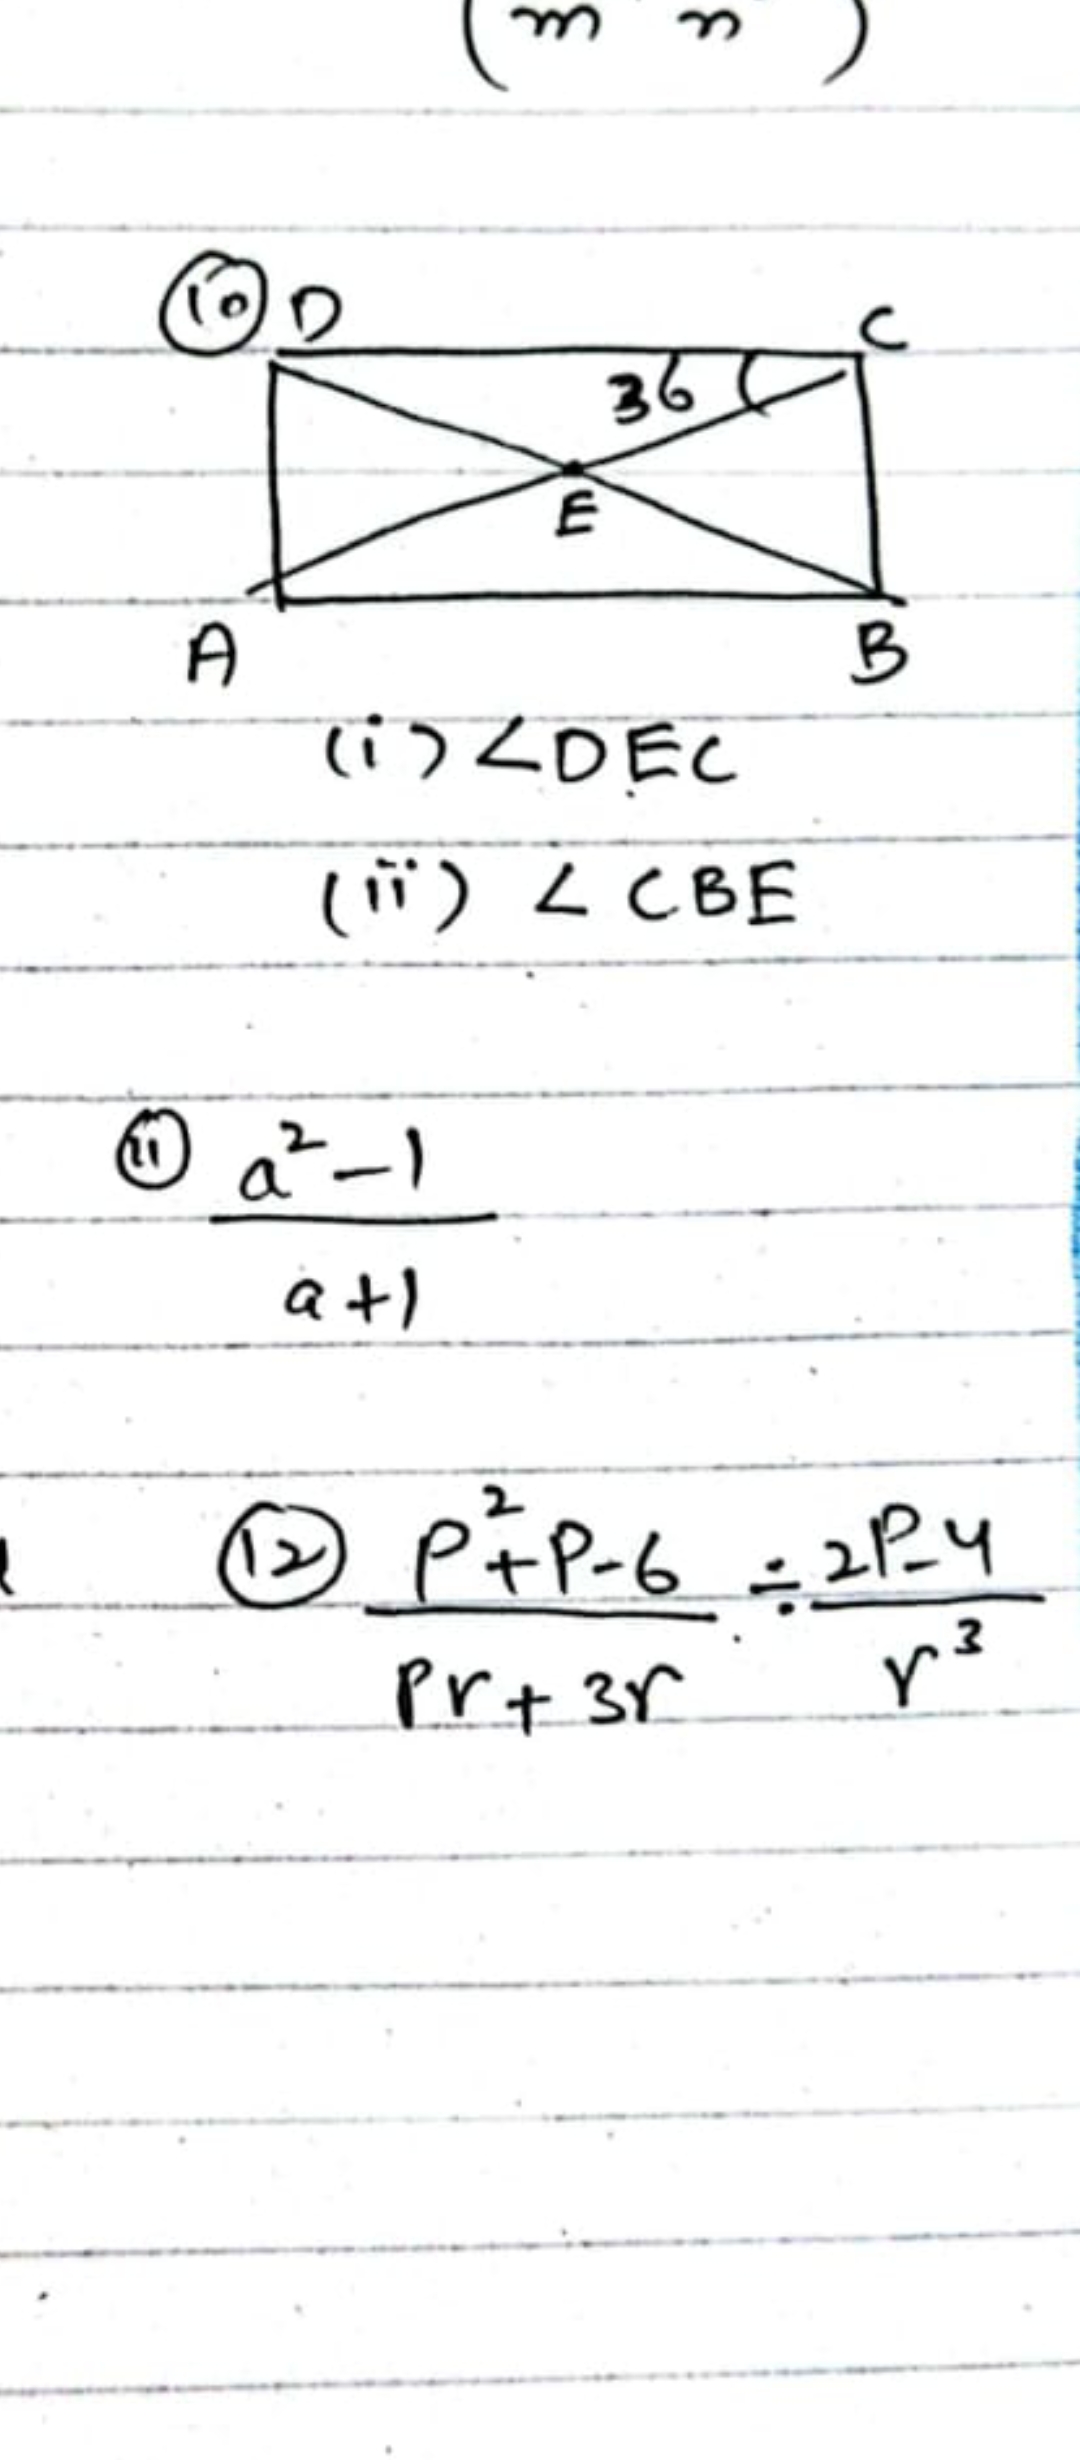 (m n)
(10) D C
36
E
A B
(i) <DEC
(ii) < CBE
(11) a²-1
a+1
(12) P²+P-6 ÷ 2P-4
Pr+3r r³